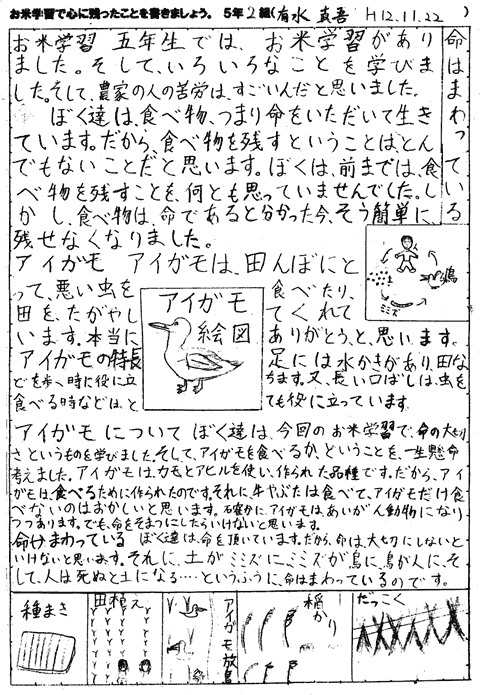 お米学習で心に残ったことを書きましょう。 5年2組(有水 真吾 H12.11.22 )
命はまわっている
お米学習 五年生では、お米学習があり
ました。そして、いろいろなことを学びま
した。そして、農家の人の苦労は、すごいんだと思いました。
ぼく達は、食べ物、つまり命をいただいて生き
ています。だから、食べ物を残すということは、とん
でもないことだと思います。ぼくは、前までは、食
べ物を残すことを、何とも思っていませんでした。し
かし、食べ物は、命であると分かった今、そう簡単に、
残せなくなりました。
鳥
ミミズ
アイガモ アイガモは、田んぼにと
って、悪い虫を食べたり、
田を、たがやしてくれて
います。本当にありがとう、と、思います。
アイガモの特長 足には水かきがあり、田な
どを歩く時に役に立ちます。又、長い口ばしは、虫を
食べる時などは、とても役に立っています。
アイガモ
絵図
アイガモについて ぼく達は、今回のお米学習で、命の大切
さというものを学びました。そして、アイガモを食べるか、ということを、一生懸命
考えました。アイガモは、カモとアヒルを使い、作られた品種です。だから、アイ
ガモは、食べるために作られたのです。それに、牛やぶたは食べて、アイガモだけ食
べないのはおかしいと思います。確かに、アイガモは、あいがん動物になり
つつあります。でも、命をそまつにしたらいけないと思います。
命はまわっている ぼく達は、命を頂いています。だから、命は、大切にしないと
いけないと思います。それに、土がミミズに、ミミズが鳥に、鳥が人に、そ
して、人は死ぬと土になる…というふうに、命はまわっているのです。
種まき
田植え
アイガモ放鳥
稲かり
だっこく